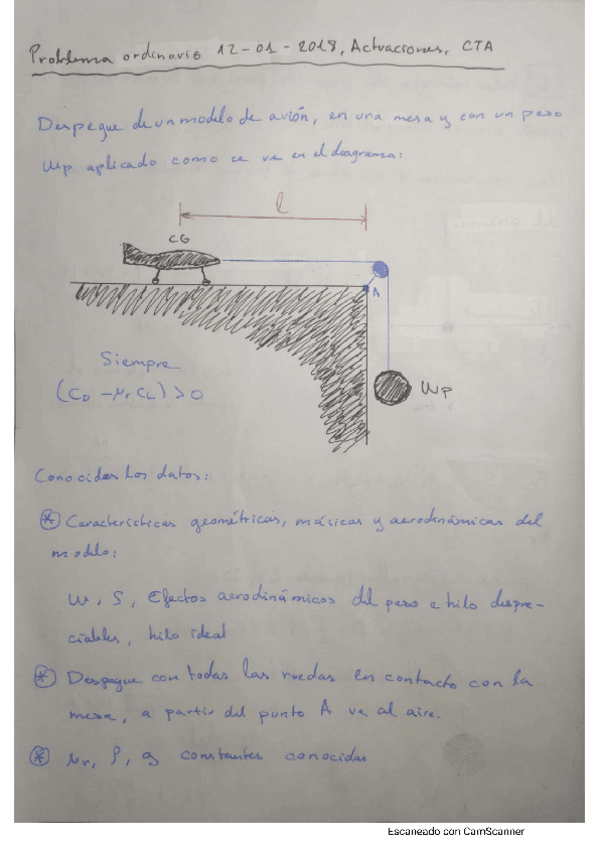 Problema ordinario 12-01-2018, Actuaciones, CTA
Despegue de un modelo de avión, en una mesa y con un peso
Wp aplicado como se ve en el diagrama:
l
CG
A
Siempre
(CD - μr CL) > 0
Wp
Conocidos los datos:
* Características geométricas, másicas y aerodinámicas del
modelo:
W, S, Efectos aerodinámicos del peso e hilo despre-
ciables, hilo ideal
* Despegue con todas las ruedas en contacto con la
mesa, a partir del punto A ve al aire.
* μr, ρ, g constantes conocidas
Escaneado con CamScanner